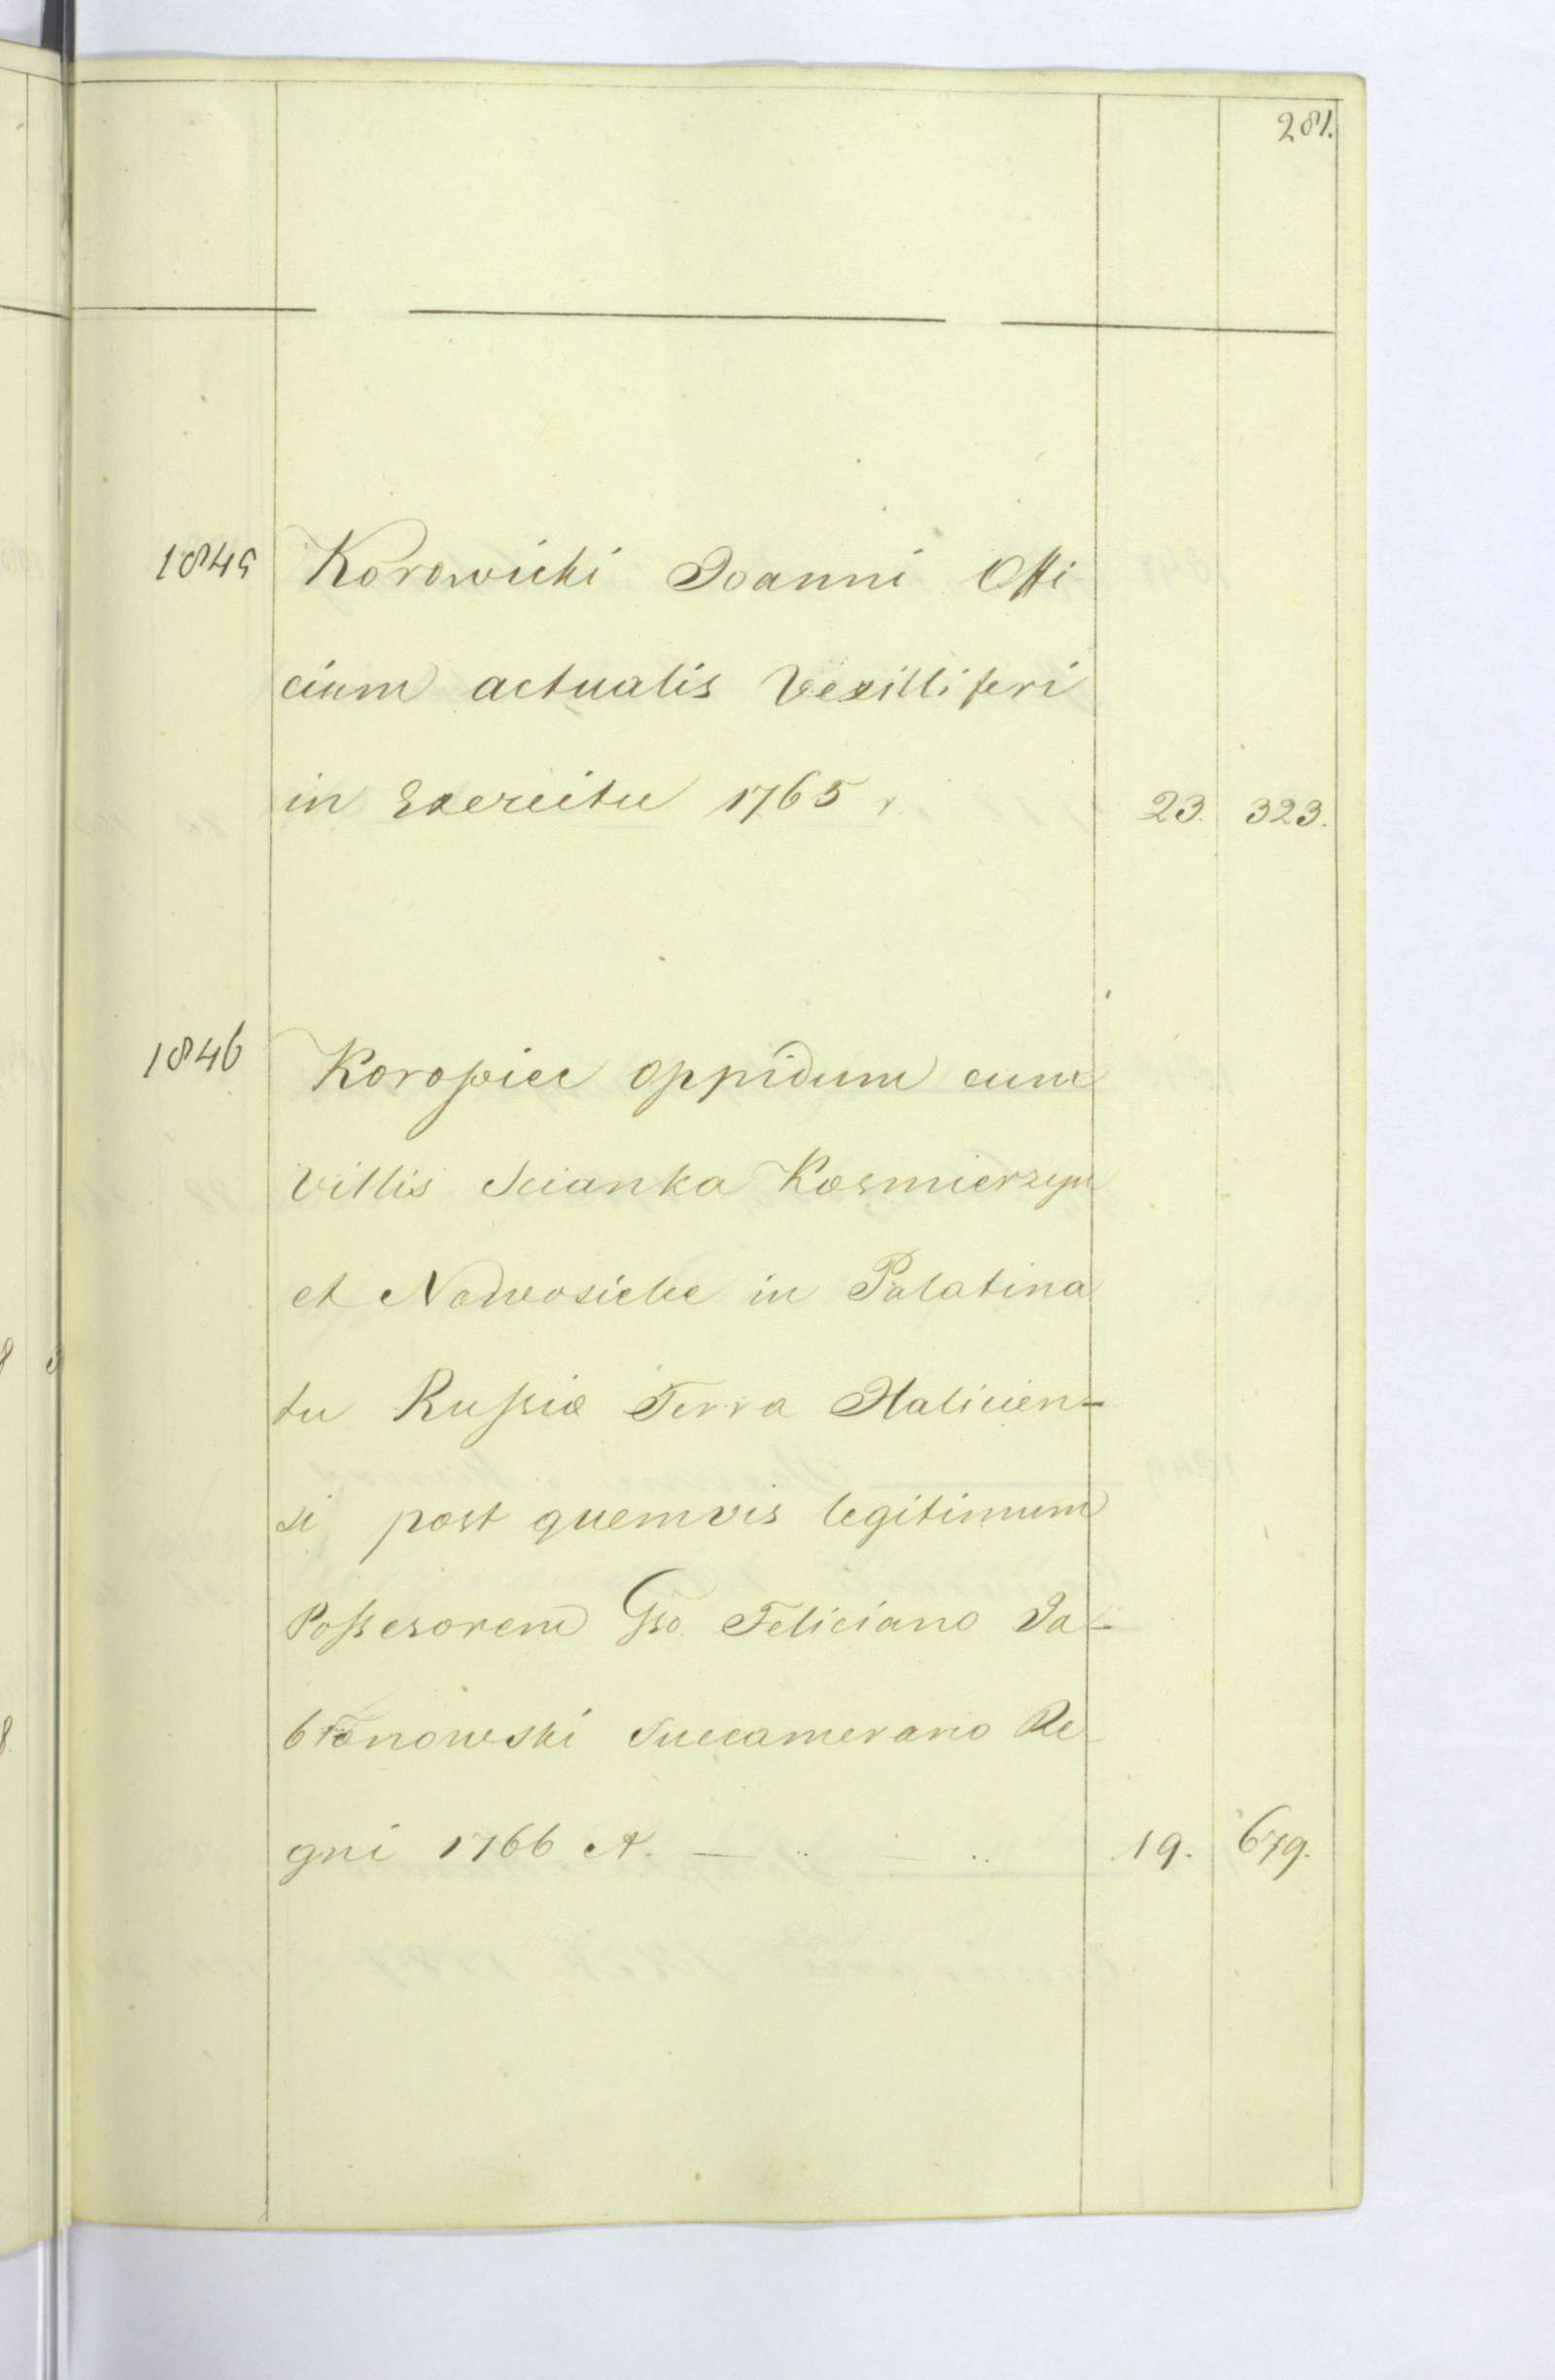 281.
1845 Korowicki Joanni Offi-
cium actualis Vexilliferi
in Exercitu 1765 r. 23. 323.
1846 Koropiec oppidum cum
Villis Scianka Kosmierzyn
et Nowosielce in Palatina
tu Russiæ Terra Halicien-
si post quemvis legitimum
Possesorem Gso. Feliciano Ja-
błonowski Succamerario Re
gni 1766 A. — .. — .. 19. 679.